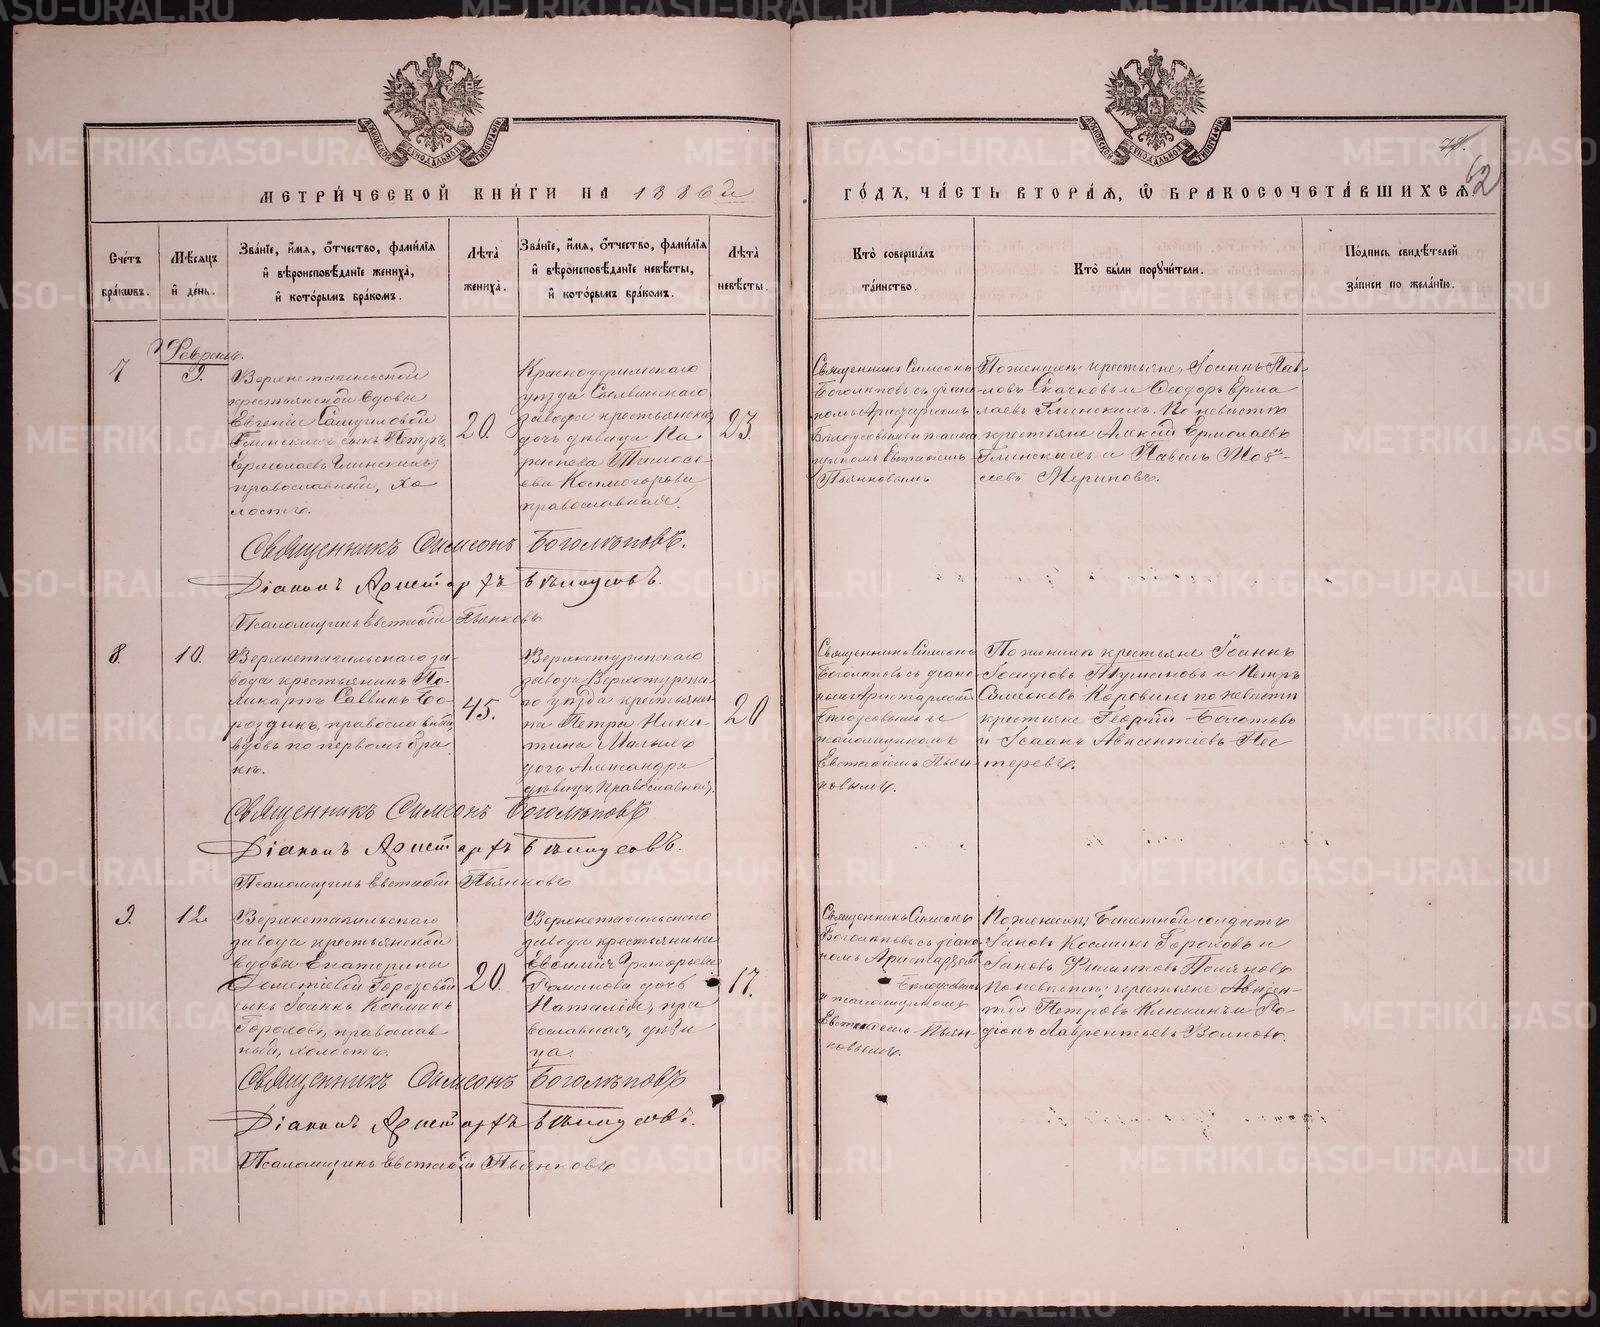 МЕТРИ́ЧЕСКОЙ КНИ́ГИ НА 1886й
ГО́ДЪ, ЧА́СТЬ ВТОРА́Я, Ѡ БРАКОСОЧЕТА́ВШИХСѦ.
62
Сче́тъ бра́кѡвъ.
Мѣ́сяцъ и҆ де́нь.
Зва́нїе, и҆́мя, ѻ҆́тчество, фами́лїя
и҆ вѣроисповѣ́данїе жениха̀,
и҆ кото́рымъ бра́комъ.
Лѣта̀ жениха̀.
Зва́нїе, и҆́мя, ѻ҆́тчество, фами́лїя
и҆ вѣроисповѣ́данїе невѣ́сты,
и҆ кото́рымъ бра́комъ.
Лѣта̀ невѣ́сты.
Кто̀ соверша́лъ та́инство.
Кто̀ бы́ли поручи́тели.
По́дпись свидѣ́телей за́писи по жела́нїю.
7
Февраль.
9.
Верхнетагильской
крестьянской вдовы
Евгеніи Самуиловой
Глинскихъ сынъ Петръ
Ермолаевъ Глинскихъ,
православный, хо
лостъ.
20.
Красноуфимскаго
уѣзда Сылвинскаго
завода крестьянская
дочь дѣвица Па
раскева Тимоѳе
ева Космогорова
православная.
23.
Священникъ Симеонъ
Боголѣповъ съ діако
номъ Аристархомъ
Бѣлоусовымъ и псалом
щикомъ Евстаѳіемъ
Пьянковымъ
По женихѣ: крестьяне, Іоаннъ Пав
ловъ Скачковъ и Ѳеодоръ Ермо
лаевъ Глинскихъ. По невѣстѣ
крестьяне Алексѣй Ермолаевъ
Глинскихъ и Павелъ Мои
сеевъ Мериновъ.
Священникъ Симеонъ Боголѣповъ.
Діаконъ Аристархъ Бѣлоусовъ.
Псаломщикъ Евстаѳій Пьянковъ
8.
10.
Верхнетагильскаго за-
вода крестьянинъ По-
ликарпъ Саввинъ Бо-
роздинъ, православный,
вдовъ по первомъ бра
кѣ.
45.
Верхнетуринскаго
завода Верхотурска
го уѣзда крестьяни
на Петра Ники
тина Малыхъ
дочь Александра
дѣвица, православная.
20
Священникъ Симеонъ
Боголѣповъ съ діако
номъ Аристархомъ
Бѣлоусовымъ и
псаломщикомъ
Евстаѳіемъ Пьян
ковымъ.
По женихѣ крестьяне Іоаннъ
Іосифовъ Тумановъ и Петръ
Симеоновъ Коровинъ по невѣстѣ
крестьяне Георгій Болотовъ
и Ісаакъ Авксентіевъ Пес
теревъ.
Священникъ Симеонъ Боголѣповъ
Діаконъ Аристархъ Бѣлоусовъ.
Псаломщикъ Евстаѳій Пьянковъ
9.
12
Верхнетагильскаго
завода крестьянской
вдовы Екатерины
Дометіевой Гороховой
сынъ Іоаннъ Косминъ
Гороховъ, православ
ный, холостъ.
20.
Верхнетагильскаго
завода крестьянина
Евсимія Григорьева
Романова дочь
Наталія, пра
вославная, дѣви
ца.
17.
Священникъ Симеонъ
Боголѣповъ съ діако
номъ Аристархомъ
Бѣлоусовымъ
и псаломщикомъ
Евстаѳіемъ Пьян
ковымъ.
По женихѣ; билетной солдатъ
Іаковъ Косминъ Гороховъ и
Іаковъ Филатковъ Поляковъ
По невѣстѣ; крестьяне Авксен-
тій Петровъ Клюкинъ и Ро-
діонъ Лаврентьевъ Волковъ.
Священникъ Симеонъ Боголѣповъ
Діаконъ Аристархъ Бѣлоусовъ.
Псаломщикъ Евстаѳій Пьянковъ
METRIKI.GASO-URAL.RU